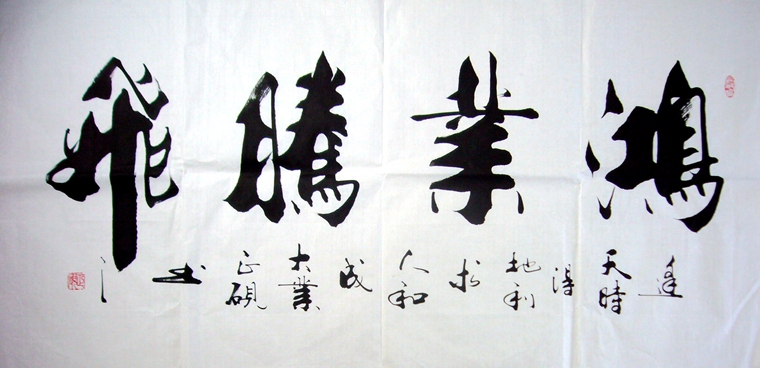 鸿業騰飛
逢天時得地利於人和成大業正硯書